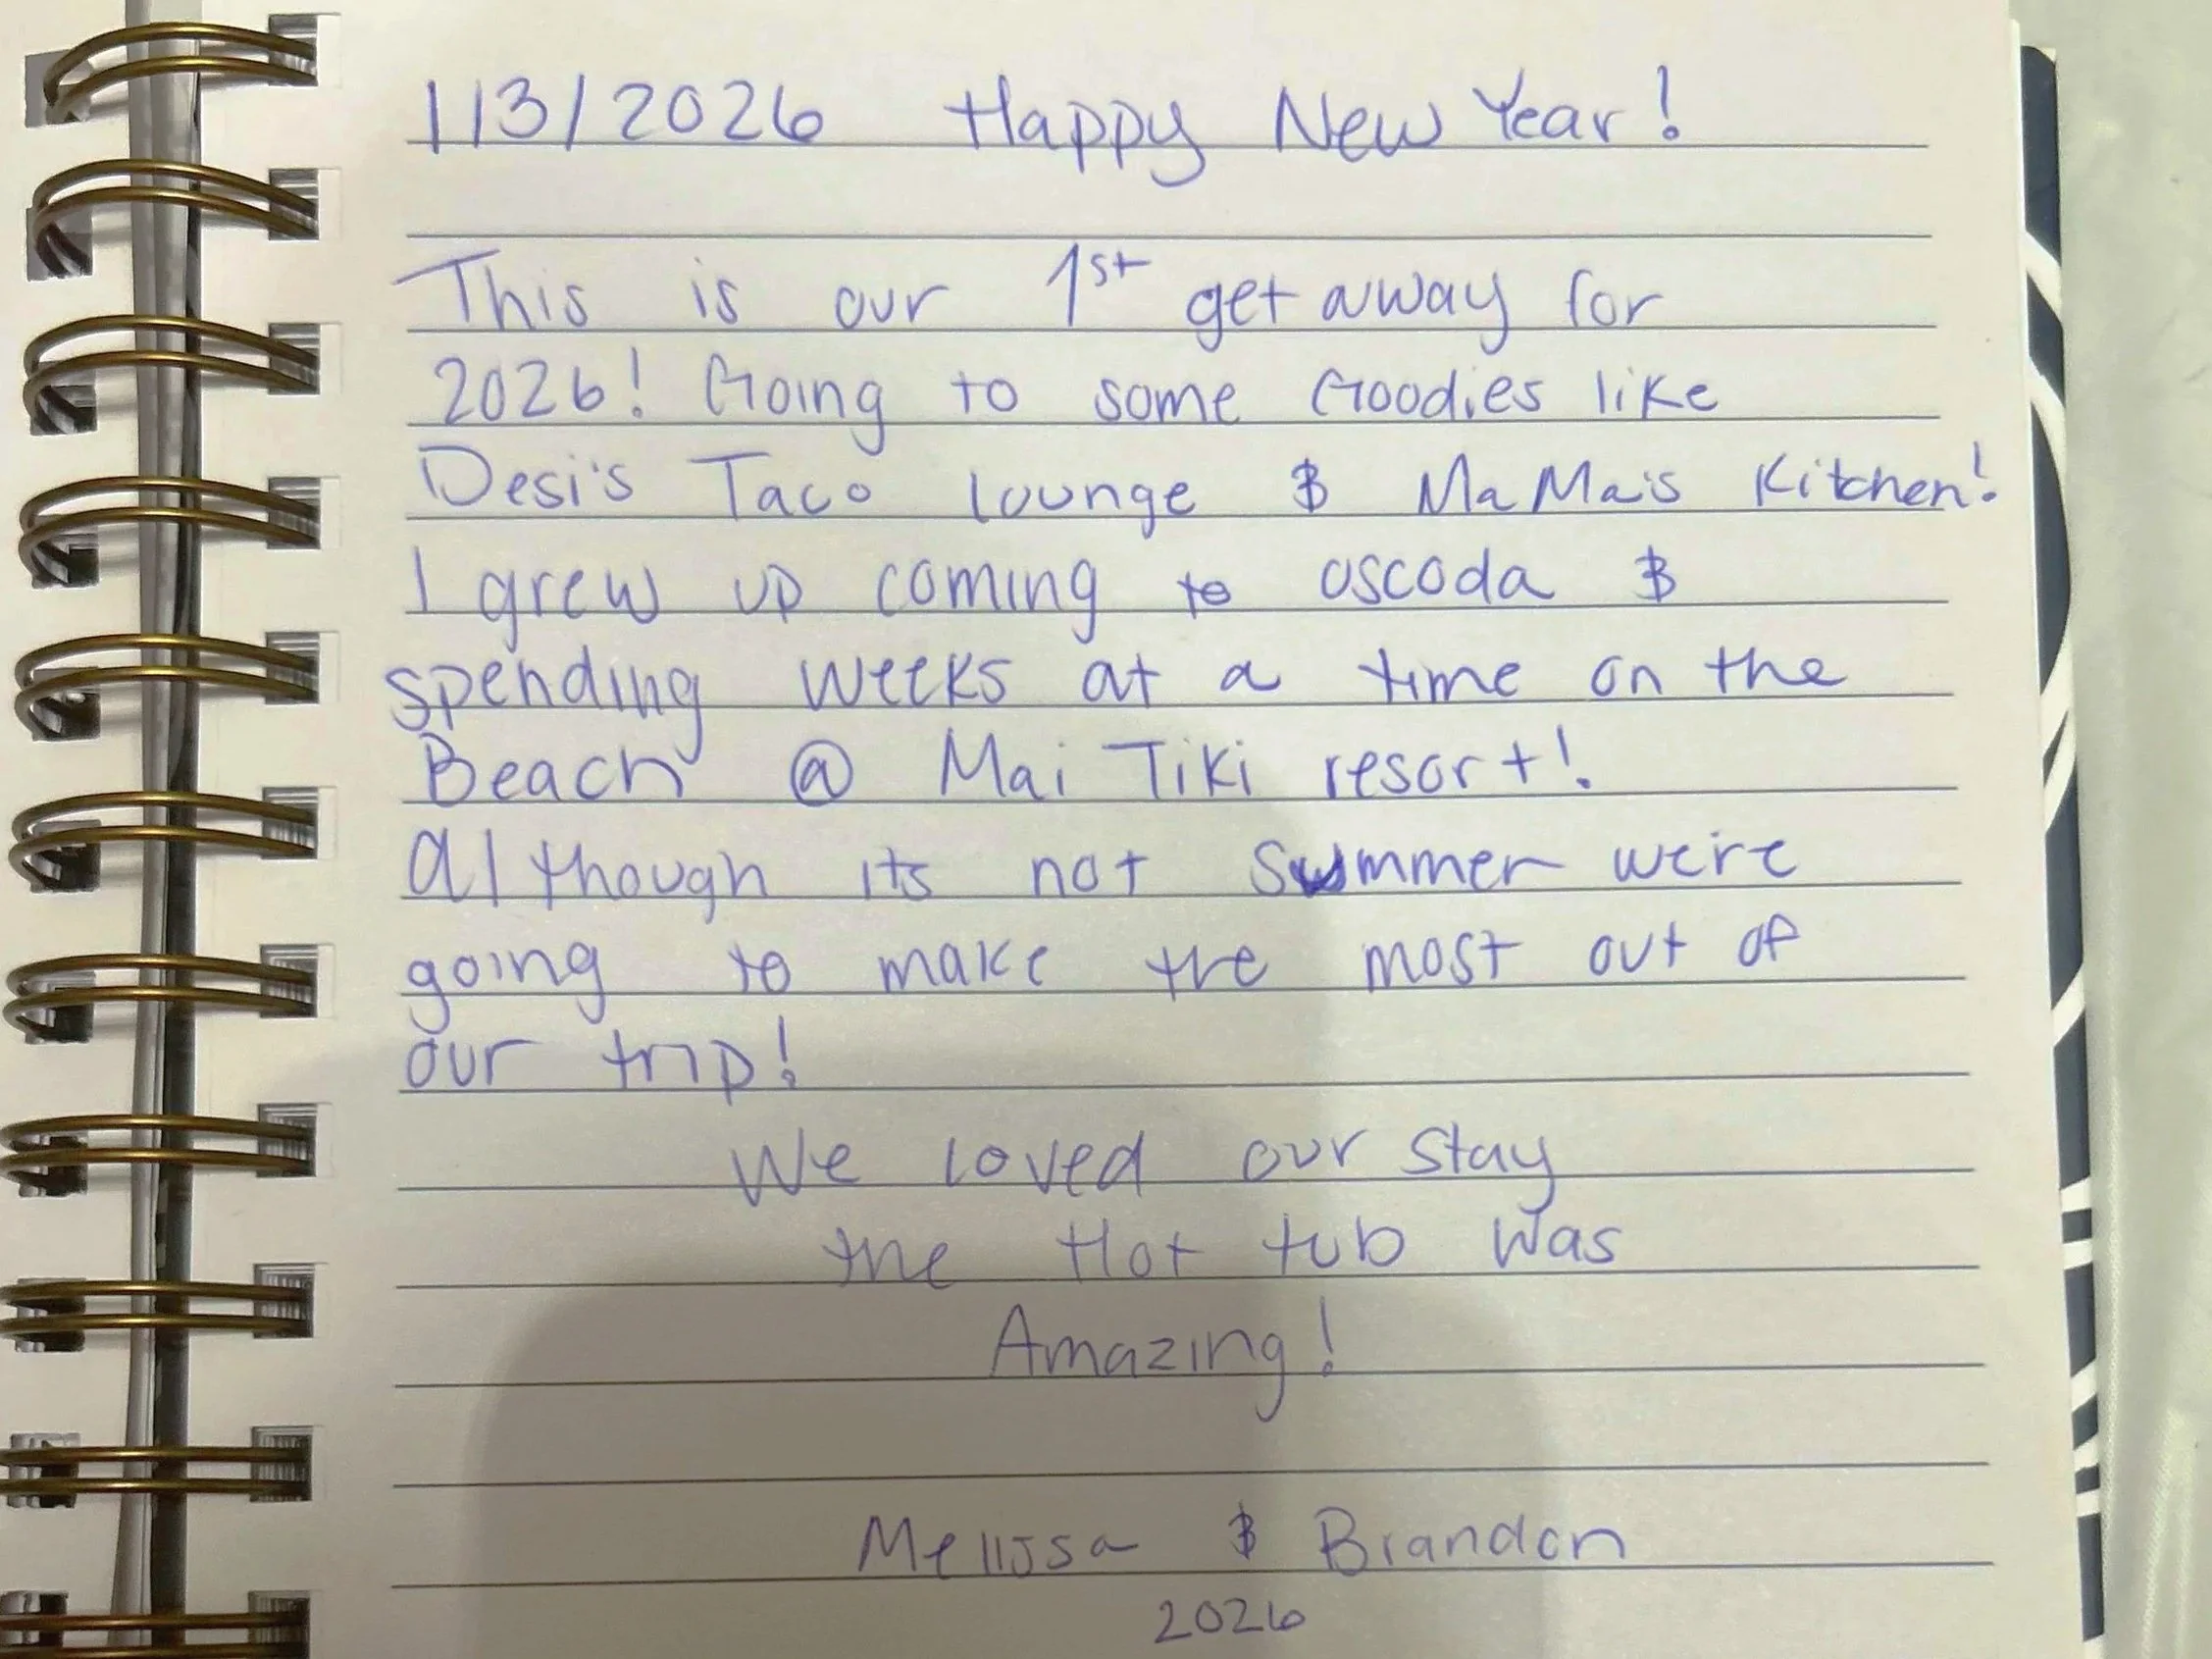 1/3/2026 Happy New Year!
This is our 1st get away for
2026! Going to some Goodies like
Desi's Taco lounge & MaMa's Kitchen!
I grew up coming to oscoda &
spending weeks at a time on the
Beach @ Mai Tiki resort!
Although its not summer were
going to make the most out of
our trip!
We loved our stay
the Hot tub was
Amazing!
Melissa & Brandon
2026